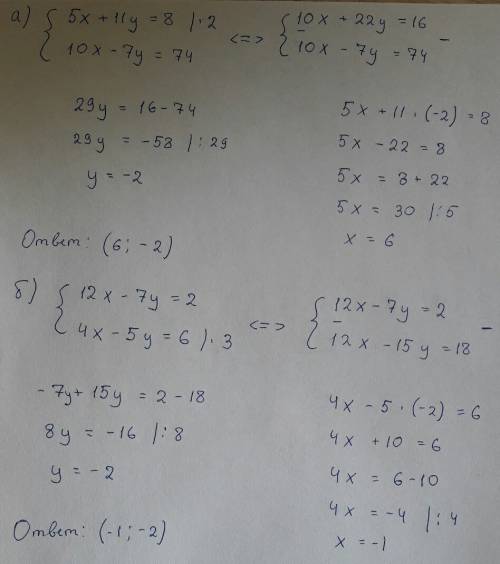 а) { 5x + 11y = 8 |·2 <=> { 10x + 22y = 16
10x - 7y = 74 10x - 7y = 74 -
29y = 16 - 74
29y = -58 |: 29
y = -2
5x + 11 · (-2) = 8
5x - 22 = 8
5x = 8 + 22
5x = 30 |:5
x = 6
Ответ: (6; -2)
б) { 12x - 7y = 2 <=> { 12x - 7y = 2 -
4x - 5y = 6 |· 3 12x - 15y = 18
- 7y + 15y = 2 - 18
8y = -16 |: 8
y = -2
4x - 5 · (-2) = 6
4x + 10 = 6
4x = 6 - 10
4x = -4 |: 4
x = -1
Ответ: (-1; -2)